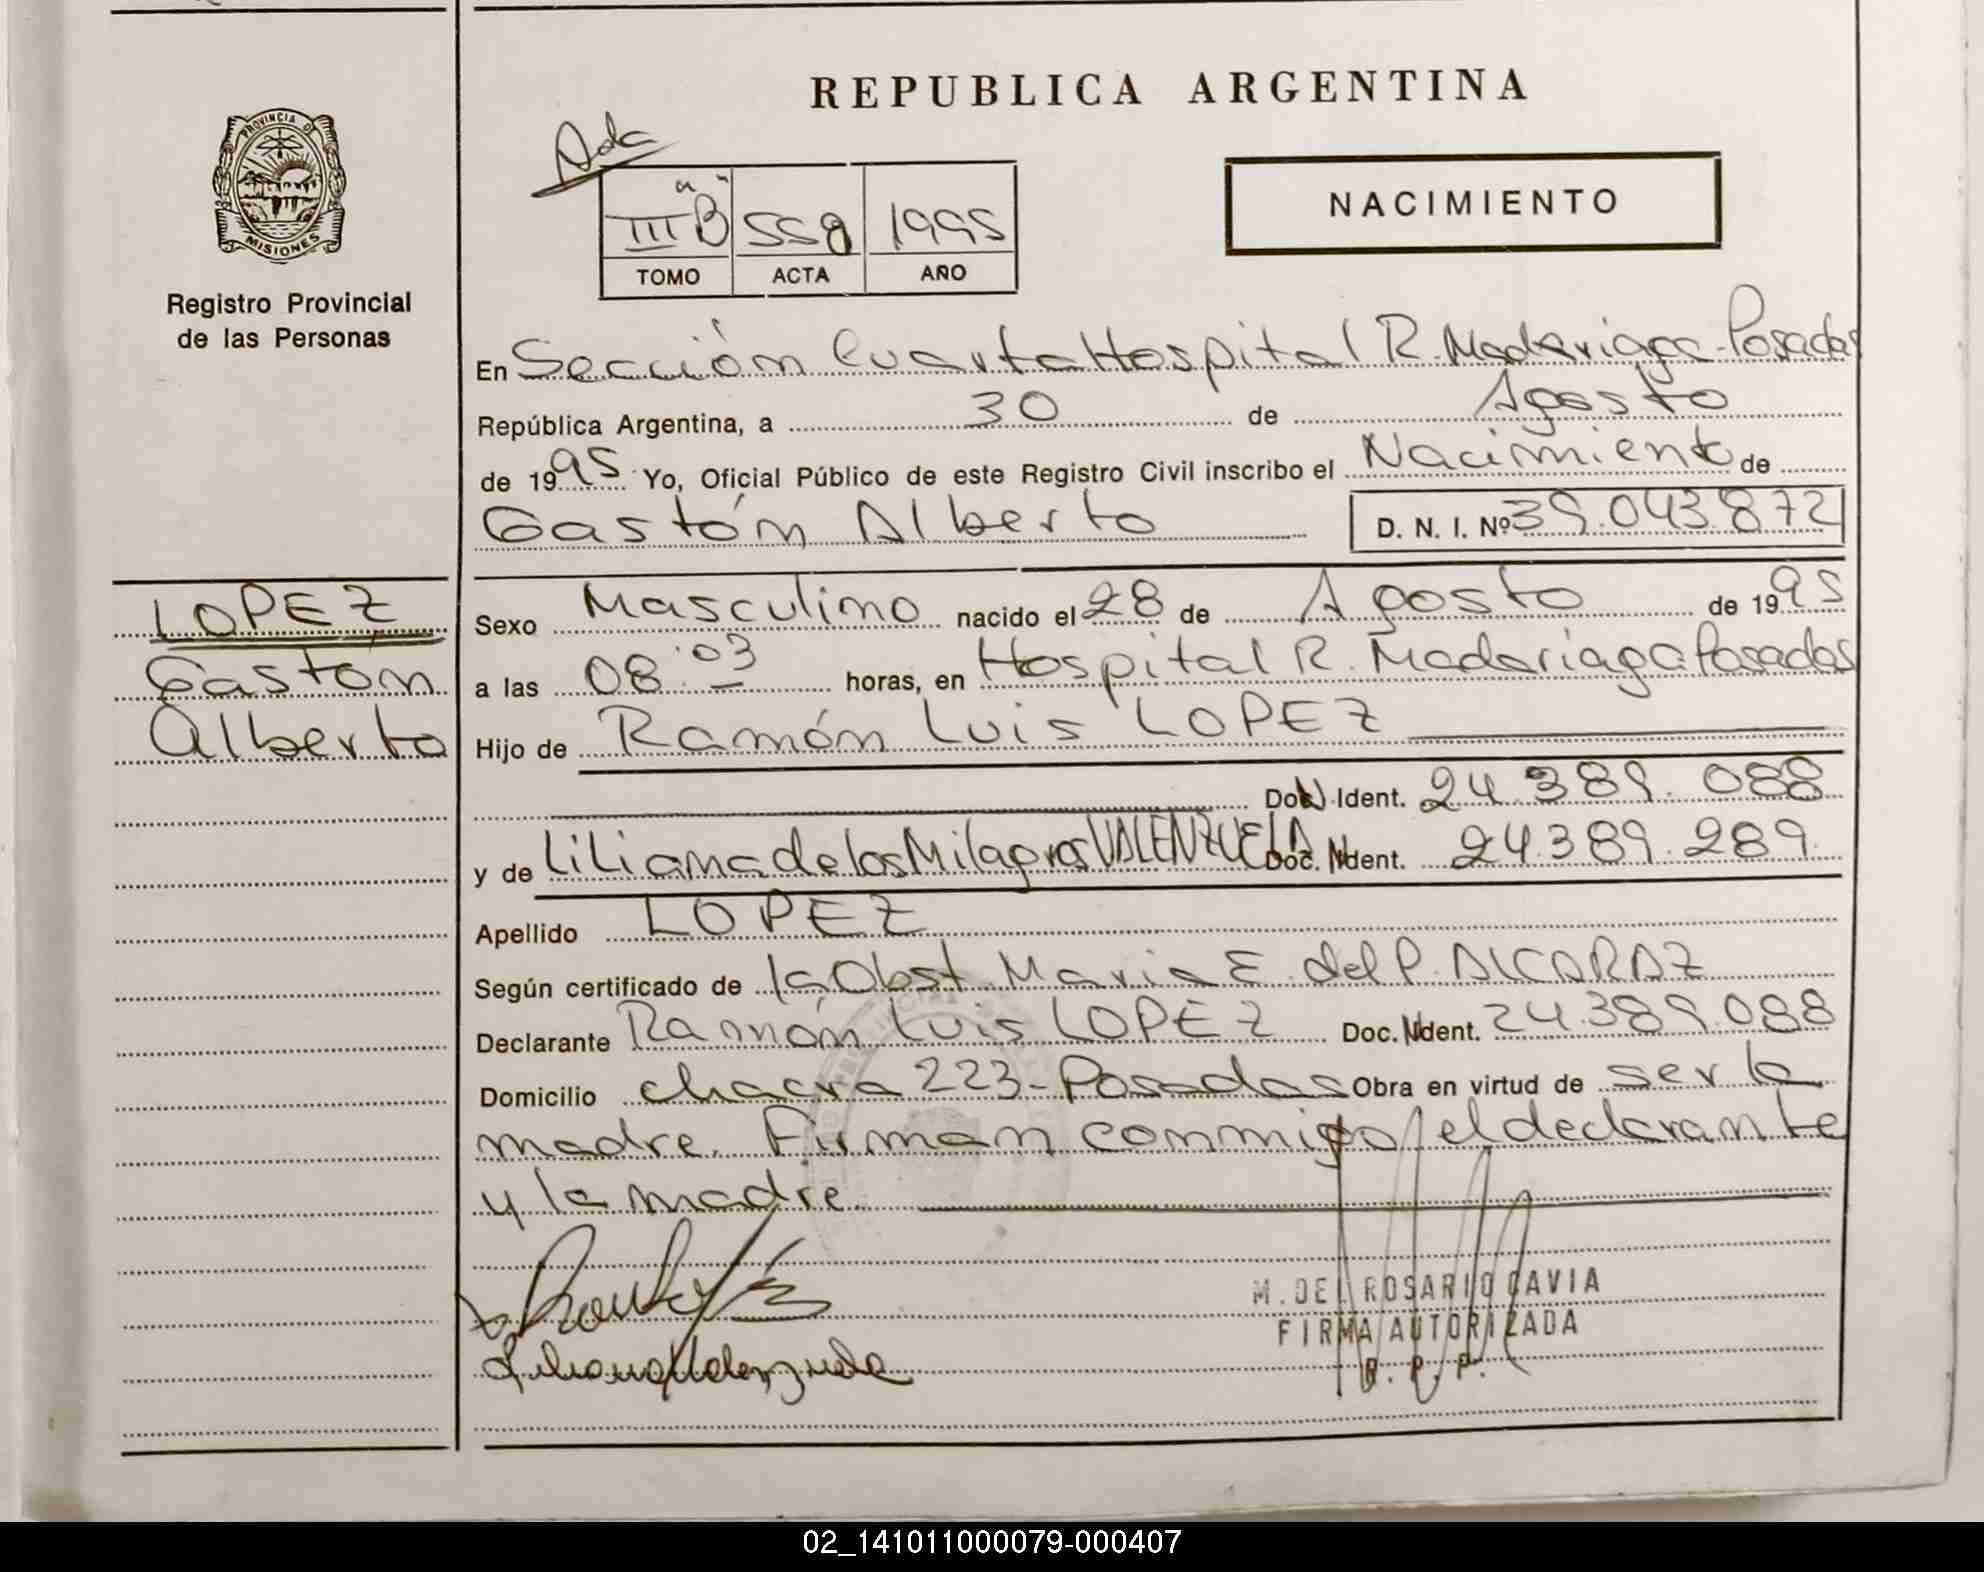 PROVINCIA DE
MISIONES
Registro Provincial
de las Personas
REPUBLICA ARGENTINA
NACIMIENTO
III "B" 558 1995
TOMO ACTA AÑO
En Sección Cuarta Hospital R. Madariaga - Posadas
República Argentina, a 30 de Agosto
de 1995 Yo, Oficial Público de este Registro Civil inscribo el Nacimiento de
Gastón Alberto D. N. I. Nº 39.043.872
LOPEZ
Gastón
Alberto
Sexo Masculino nacido el 28 de Agosto de 1995
a las 08:03 horas, en Hospital R. Madariaga Posadas
Hijo de Ramón Luis LOPEZ
DoN Ident. 24.389.088
y de Liliana de los Milagros VALENZUELA Doc. Nident. 24.389.289.
Apellido LOPEZ
Según certificado de la Obst. Maria E. del P. ALCARAZ
Declarante Ramón Luis LOPEZ Doc. Nident. 24.389.088
Domicilio chacra 223 - Posadas Obra en virtud de ser la
madre. Firman conmigo el declarante
y la madre.
Liliana Valenzuela
M. DEL ROSARIO GAVIA
FIRMA AUTORIZADA
R. P. P.
02_141011000079-000407